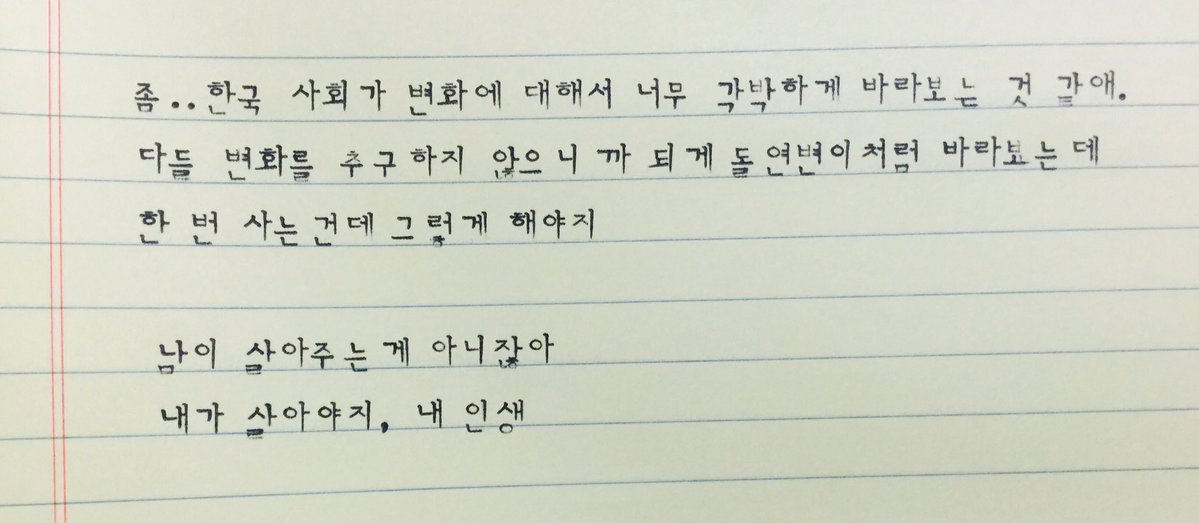 좀..한국 사회가 변화에 대해서 너무 각박하게 바라보는 것 같애.
다들 변화를 추구하지 않으니까 되게 돌연변이처럼 바라보는데
한 번 사는건데 그렇게 해야지
남이 살아주는게 아니잖아
내가 살아야지, 내 인생